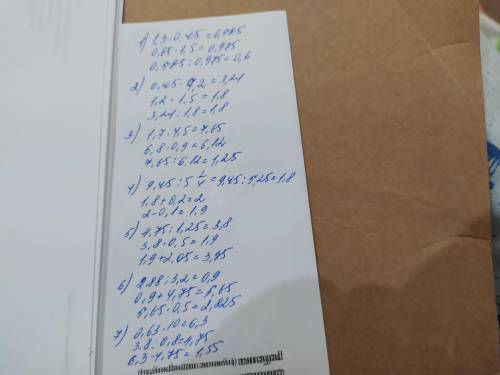 1) 1,3·0,45=0,585
0,65·1,5=0,975
0,585:0,975=0,6
2) 0,45·7,2=3,24
1,2·1,5=1,8
3,24:1,8=1,8
3) 1,7·4,5=7,65
6,8·0,9=6,12
7,65:6,12=1,25
4) 9,45:5 1/4=9,45:5,25=1,8
1,8+0,2=2
2-0,1=1,9
5) 4,75:1,25=3,8
3,8·0,5=1,9
1,9+2,05=3,95
6) 2,88:3,2=0,9
0,9+4,75=5,65
5,65·0,5=2,825
7) 0,63·10=6,3
3,8:0,8=4,75
6,3-4,75=1,55